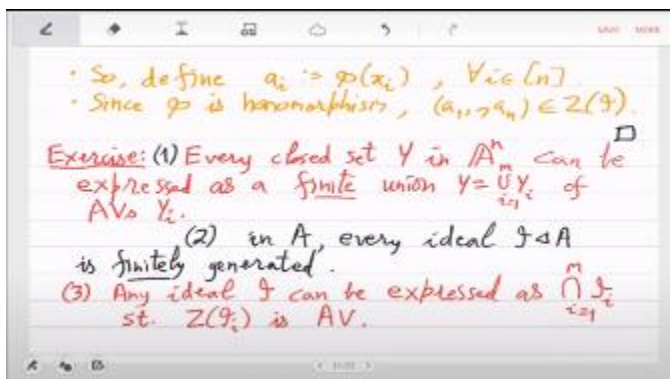 SAVE MORE
• So, define a_i := φ(x_i) , ∀i∈[n]
• Since φ is homomorphism, (a_1,..,a_n) ∈ Z(I).
□
Exercise: (1) Every closed set Y in 𝔸^n can be
expressed as a finite union Y = ⋃_{i=1}^m Y_i of
AVs Y_i.
(2) in A, every ideal I ⊲ A
is finitely generated.
(3) Any ideal I can be expressed as ⋂_{i=1}^m I_i
st. Z(I_i) is AV.